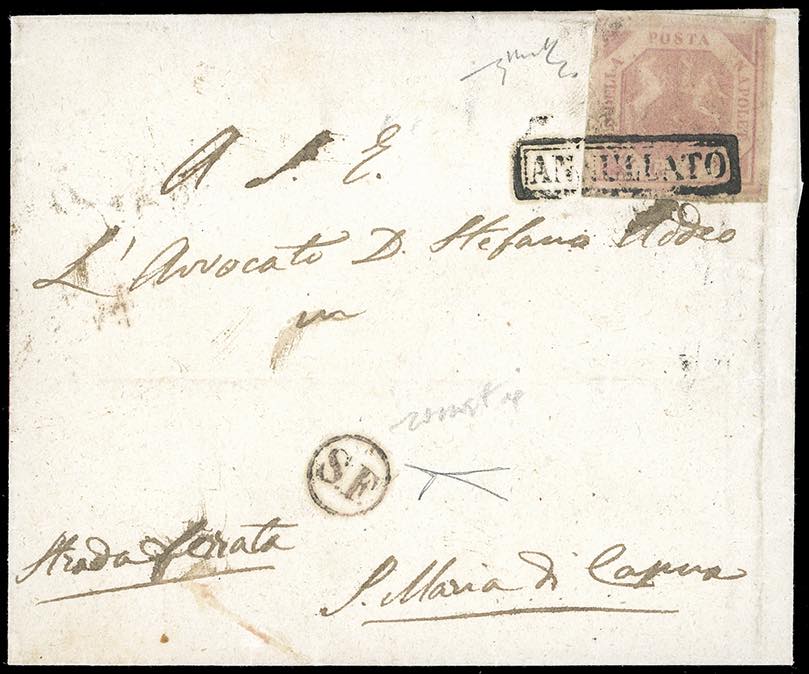 POSTA
NAPOLETANA
ANNULLATO
A S. E.
L' Avvocato D. Stefano Addeo
in
S.F
Strada ferrata
S. Maria di Capua